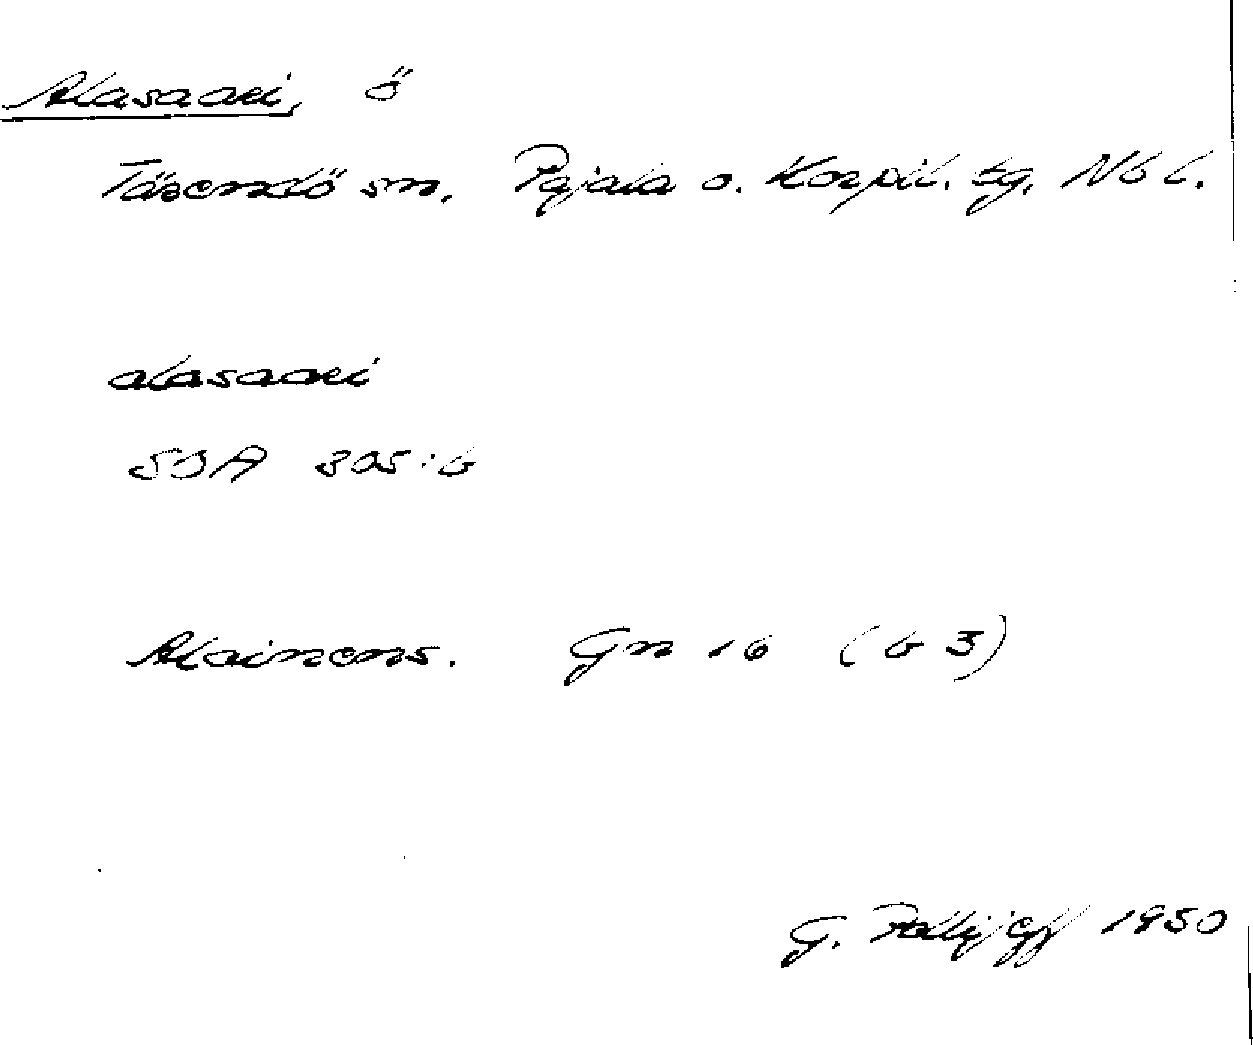 Alasaari, ö
Tärendö sn. Pajala o. Korpil. tg. Nb l.
alasaari
SOA 305:6
Alainens. Gn 16 (b 3)
G. Pellijeff 1950